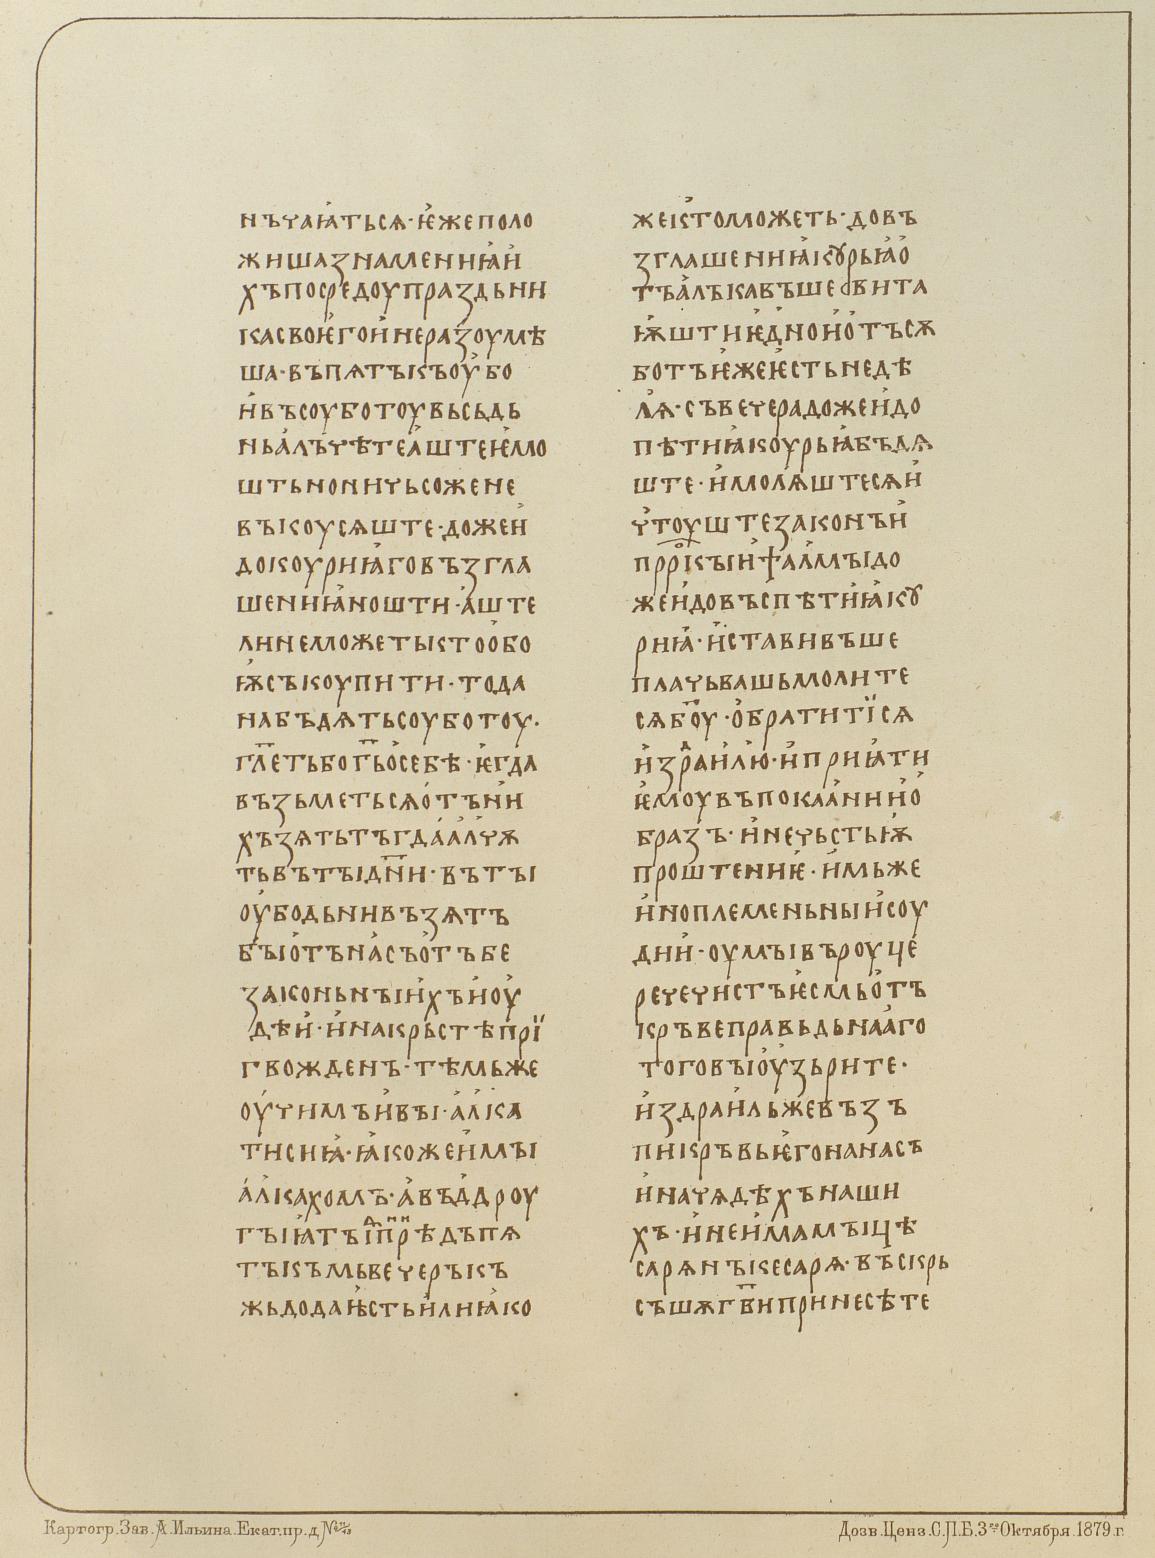 нъчаѩтьсѧ·ѥжеполо
жишазнамениꙗи
хъпосредоупраздьни
касвоѥгоинеразоумѣ
ша·въпѧтъкъоубо
ивъсоуботоувьсьдь
ньалъчѣтеаштеѥмо
штьнониꙋьсожене
въкоусѧште·дожеи
докоуриꙗговъзгла
шениꙗношти·аште
линеможетыктообо
ѭсъкоупити·тода
набъдѧтьсоуботоу·
глетьбогьосебѣ·ѥгда
възьметьсѧотъни
хъзѧтьтъгдаалчѫ
тьвътъıдни·вътъı
оубодьнивъзѧтъ
бꙑотънасъотъбе
законьнъıихъиоу
дѣи·инакрьстѣпрї
гвожденъ·тѣмьже
оучимъивъı·алка
тисиꙗ·ꙗкожеимъı
алкахомъ·авъдроу
гъıꙗтъıпрѣдъпѧ
тъкъмьвечеръıкъ
жьдодаѥстьилиꙗко
жектоможеть·довъ
зглашениꙗкꙋрьꙗо
тъалъкавъшесвита
ѭштиѥдноиотъсѫ
ботъѥжеѥстьнедѣ
лꙗ·съвечерадожеидо
пѣтиꙗкоурьꙗбъдѧ
ште·имолѧштесѧи
чтоуштезаконъи
пррокъıиѱалмъıдо
жеидовъспѣтиꙗкꙋ
риꙗ·иставивъше
плачьвашьмолите
сѧбоу·обратитїсѧ
издраилю·иприꙗти
ѥмоувъпокааниио
бразъ·инечьстьѭ
проштениѥ·имьже
иноплеменьныисоу
дии·оумъıвъроуце
речечистъѥсмьотъ
кръвеправьдьнааго
тоговъıоузьрите·
издраильжевъзъ
пикръвьѥгонанасъ
иначѧдѣхънаши
хъ·инеимамъıцѣ
сарѧнъкесарѧ·въскрь
съшѫгвипринесѣте
Картогр. Зав. А. Ильина. Екат. пр. д. №
Дозв. Ценз. С.П.Б. 3го Октября. 1879. г.